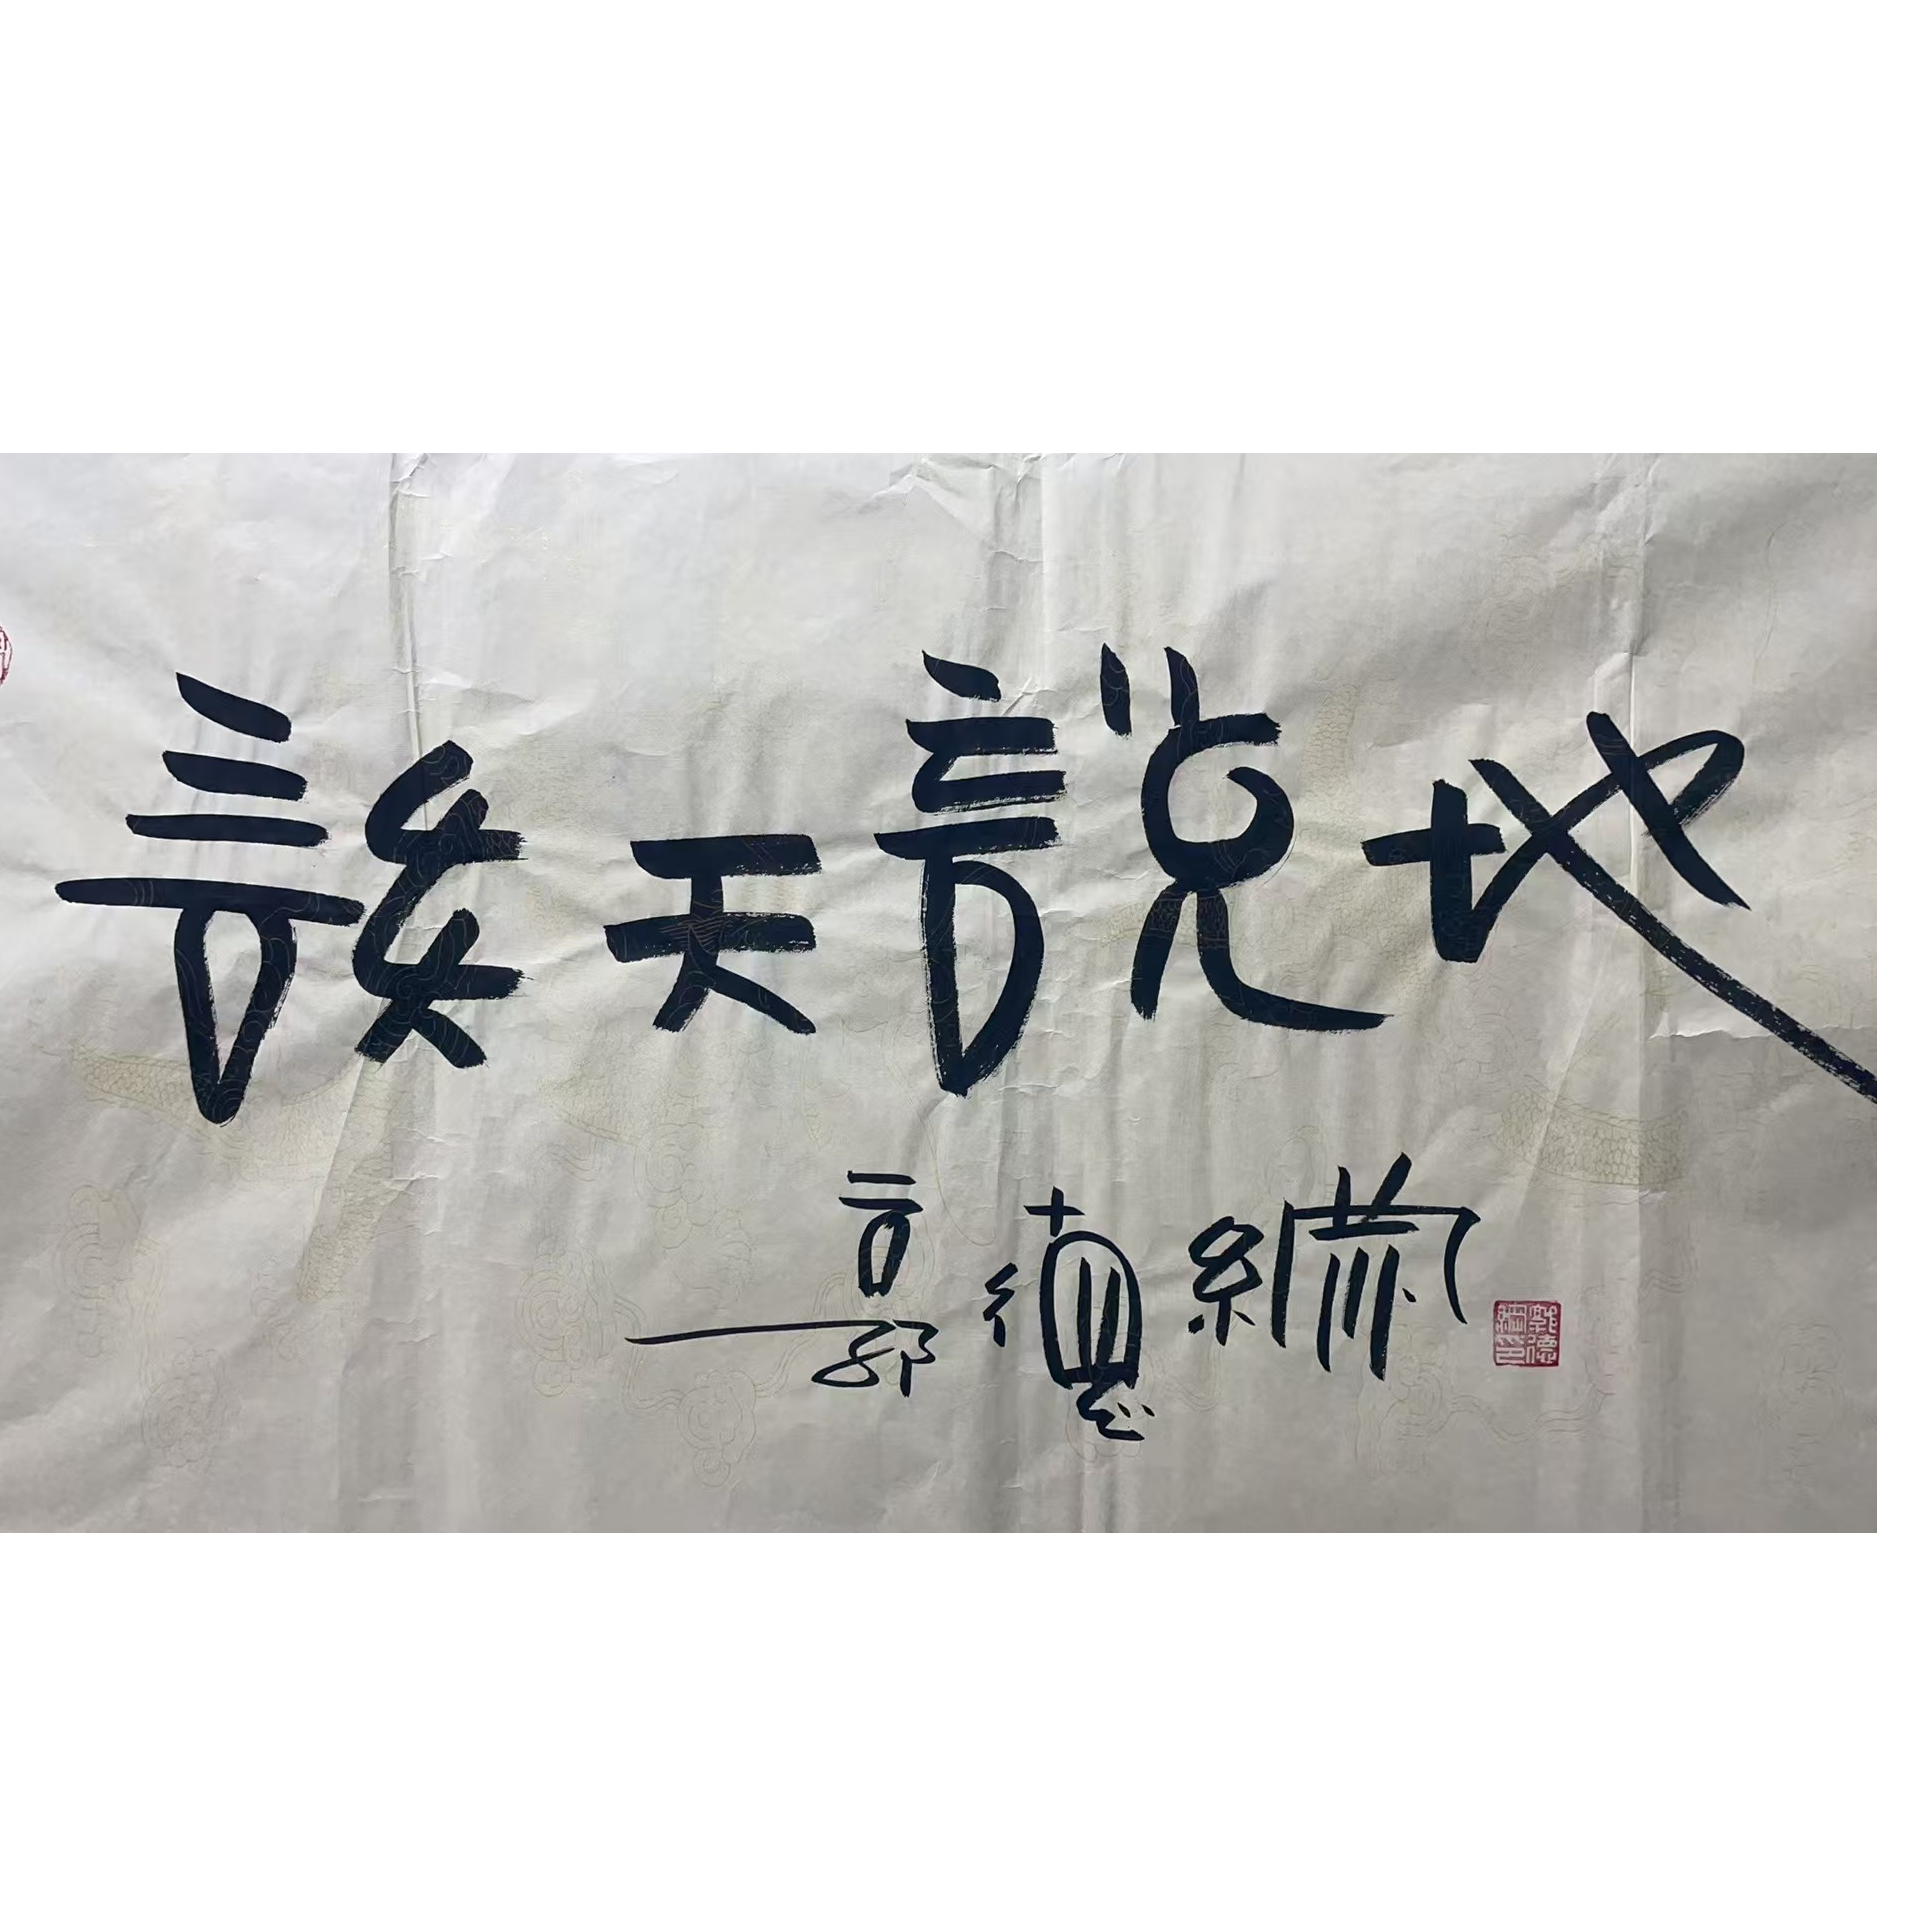 談天説地
郭德綱
郭德綱印